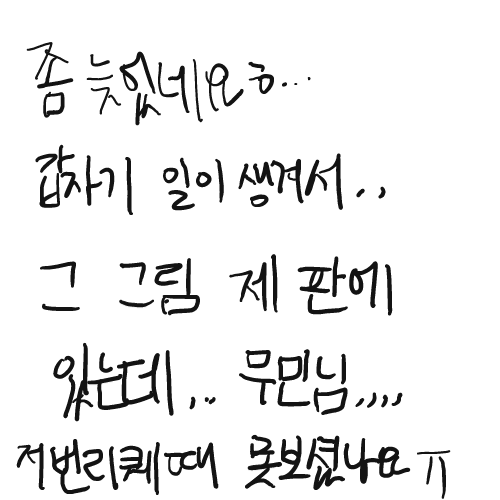 좀 늦없네요ㅎ...
갑자기 일이 생겨서..
그 그림 제 판에
있는데... 무민님,,,,
저번리퀘때 못보셨나요 ㅠ